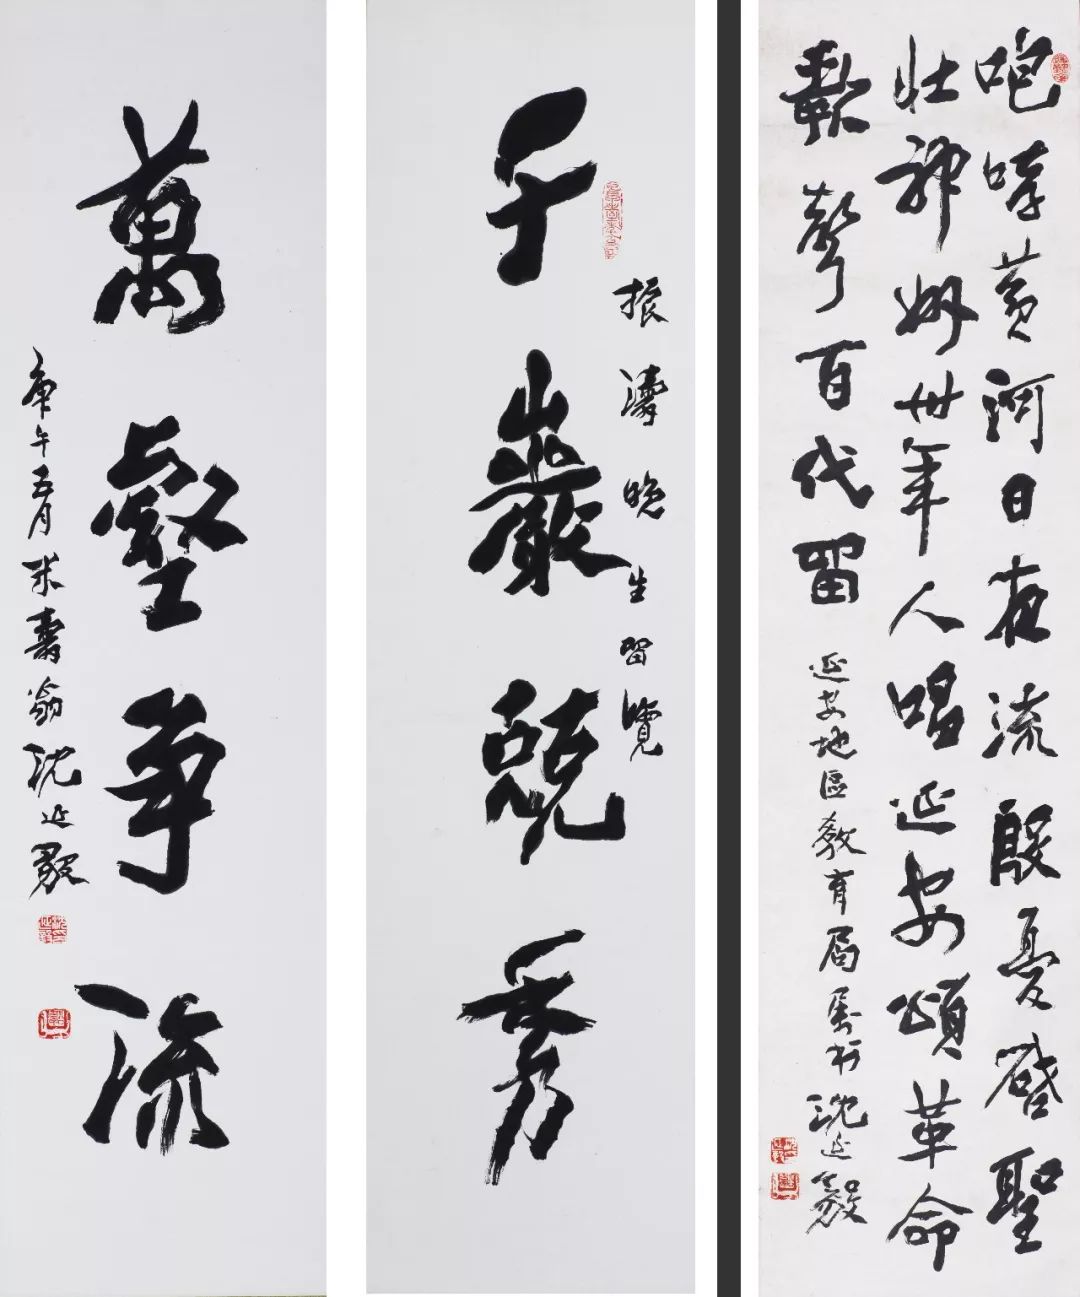 咆哮黄河日夜流殷憂啓聖
壮神州卅年人唱延安頌革命
歌聲百代留
延安地區教育局 沈延毅
振濤晚生留覽
千巖競秀
萬壑争流
庚午五月米壽翁沈延毅